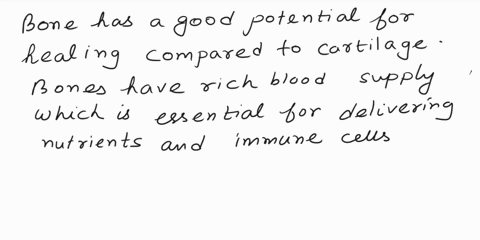 Bone has a good potential for
healing compared to cartilage.
Bones have rich blood supply
which is essential for delivering
nutrients and immune cells